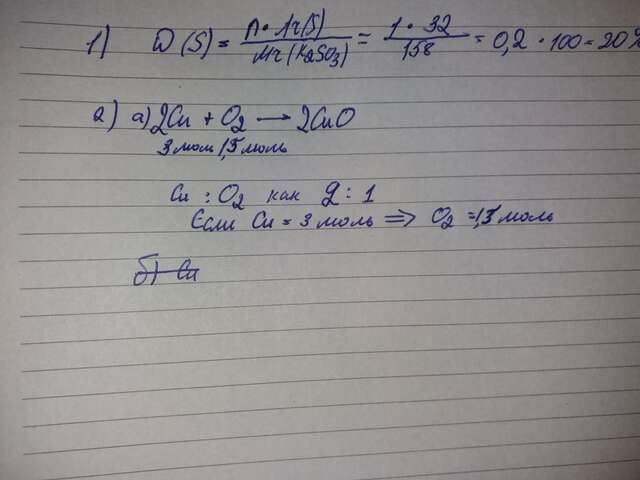 1) W(S) = n · Ar(S) / Mr(K2SO3) = 1 · 32 / 158 = 0,2 · 100 = 20%
2) а) 2Cu + O2 → 2CuO
3 моль 1,5 моль
Cu : O2 как 2 : 1
Если Cu = 3 моль ⇒ O2 = 1,5 моль
б) Cu